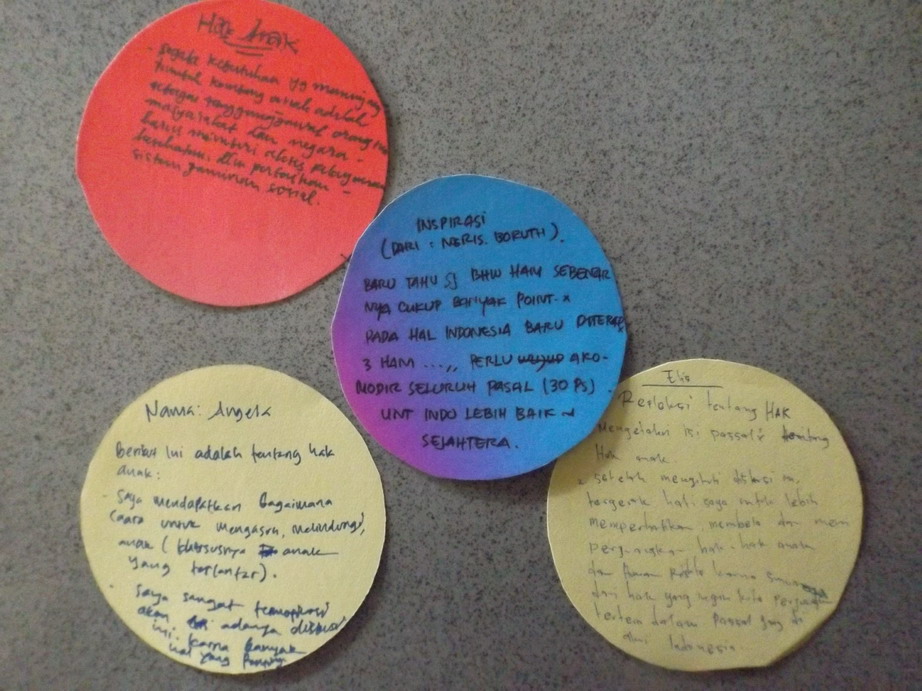 Hak Anak
- segala kebutuhan yg menunjang
tumbuh kembang anak adalah
sebagai tanggungjawab orang tua
masyarakat dan negara.
harus memberi akses pelayanan
kesehatan, dlm perbaikan
sistem jaminan sosial.
INSPIRASI
(DARI : NERIS. BORUTH).
BARU TAHU BHW HAM SEBENAR
NYA CUKUP BANYAK POINT.
PADA HAL INDONESIA BARU DITERAP
3 HAM ..., PERLU AKO-
MODIR SELURUH PASAL (30 PS)
UNT INDO LEBIH BAIK
SEJAHTERA.
Nama: Angela
Berikut ini adalah tentang hak
anak:
- Saya mendapatkan bagaimana
cara untuk mengasuh, melindungi,
anak (khususnya anak
yang terlantar).
- Saya sangat
akan adanya diskusi
ini. karna banyak
hal yang
Elis
Refleksi tentang HAK
Mengetahui isi passal tentang
Hak anak
setelah mengikuti diskusi ini,
tergerak hati saya untuk lebih
memperhatikan, membela dan mem
perjuangkan hak-hak anak
dan karna
dari hak yang ingin kita
tertera dalam passal yang di
Indonesia.